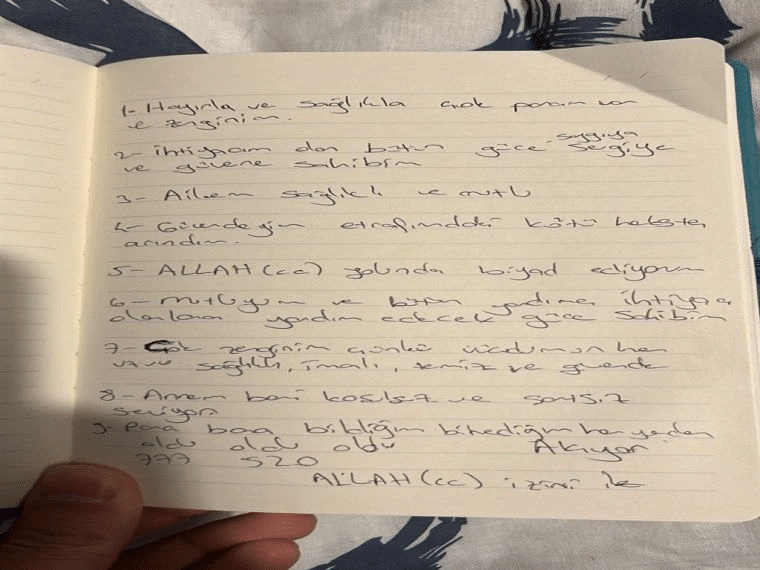 1- Hayırla ve sağlıkla çok param var
ve zenginim.
2- ihtiyacım olan bütün güce saygıya sevgiye
ve güvene sahibim
3- Ailem sağlıklı ve mutlu
4- Güvendeyim etrafımdaki kötü
arındım.
5- ALLAH (cc) yolunda ediyorum
6- mutluyum ve bütün yardıma ihtiyacı
olanlara yardım edecek güce sahibim
7- Çok zenginim çünkü vücudumun her
sağlıklı, temiz ve güvende
8- Annem beni koşulsuz ve
seviyor
9- Para bana bildiğim bilmediğim her yerden
oldu oldu oldu Akıyor
777 520
ALLAH (cc) izini ile